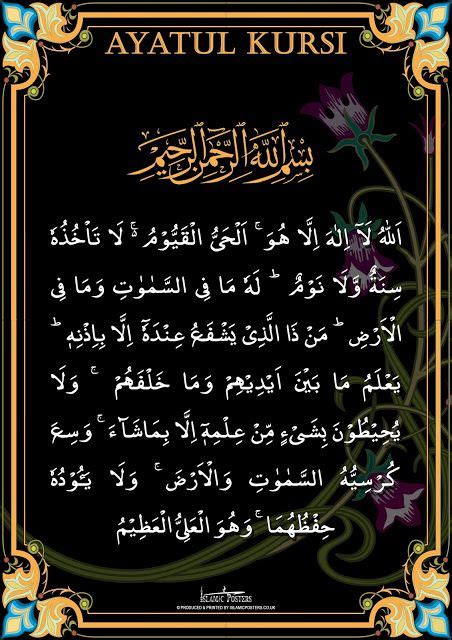 AYATUL KURSI
بِسْمِ اللّٰهِ الرَّحْمٰنِ الرَّحِيْمِ
اَللّٰهُ لَآ اِلٰهَ اِلَّا هُوَ ۚ اَلْحَىُّ الْقَيُّوْمُ ۚ لَا تَاْخُذُهٗ
سِنَةٌ وَّلَا نَوْمٌ ؕ لَهٗ مَا فِى السَّمٰوٰتِ وَمَا فِى
الْاَرْضِ ؕ مَنْ ذَا الَّذِىْ يَشْفَعُ عِنْدَهٗٓ اِلَّا بِاِذْنِهٖ ؕ
يَعْلَمُ مَا بَيْنَ اَيْدِيْهِمْ وَمَا خَلْفَهُمْ ۚ وَلَا
يُحِيْطُوْنَ بِشَىْءٍ مِّنْ عِلْمِهٖٓ اِلَّا بِمَاشَآءَ ۚ وَسِعَ
كُرْسِيُّهُ السَّمٰوٰتِ وَالْاَرْضَ ۚ وَلَا يَـُٔوْدُهٗ
حِفْظُهُمَا ۚ وَهُوَ الْعَلِىُّ الْعَظِيْمُ
ISLAMIC POSTERS
© PRODUCED & PRINTED BY ISLAMICPOSTERS.CO.UK